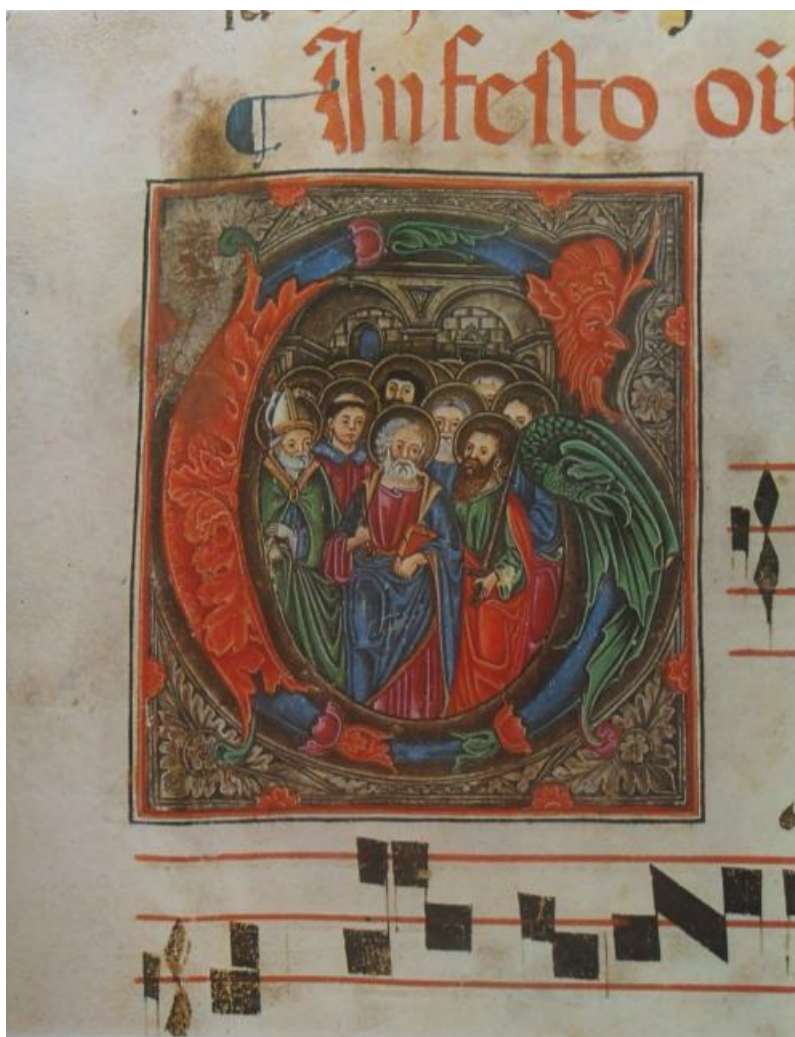 ¶ In festo oi